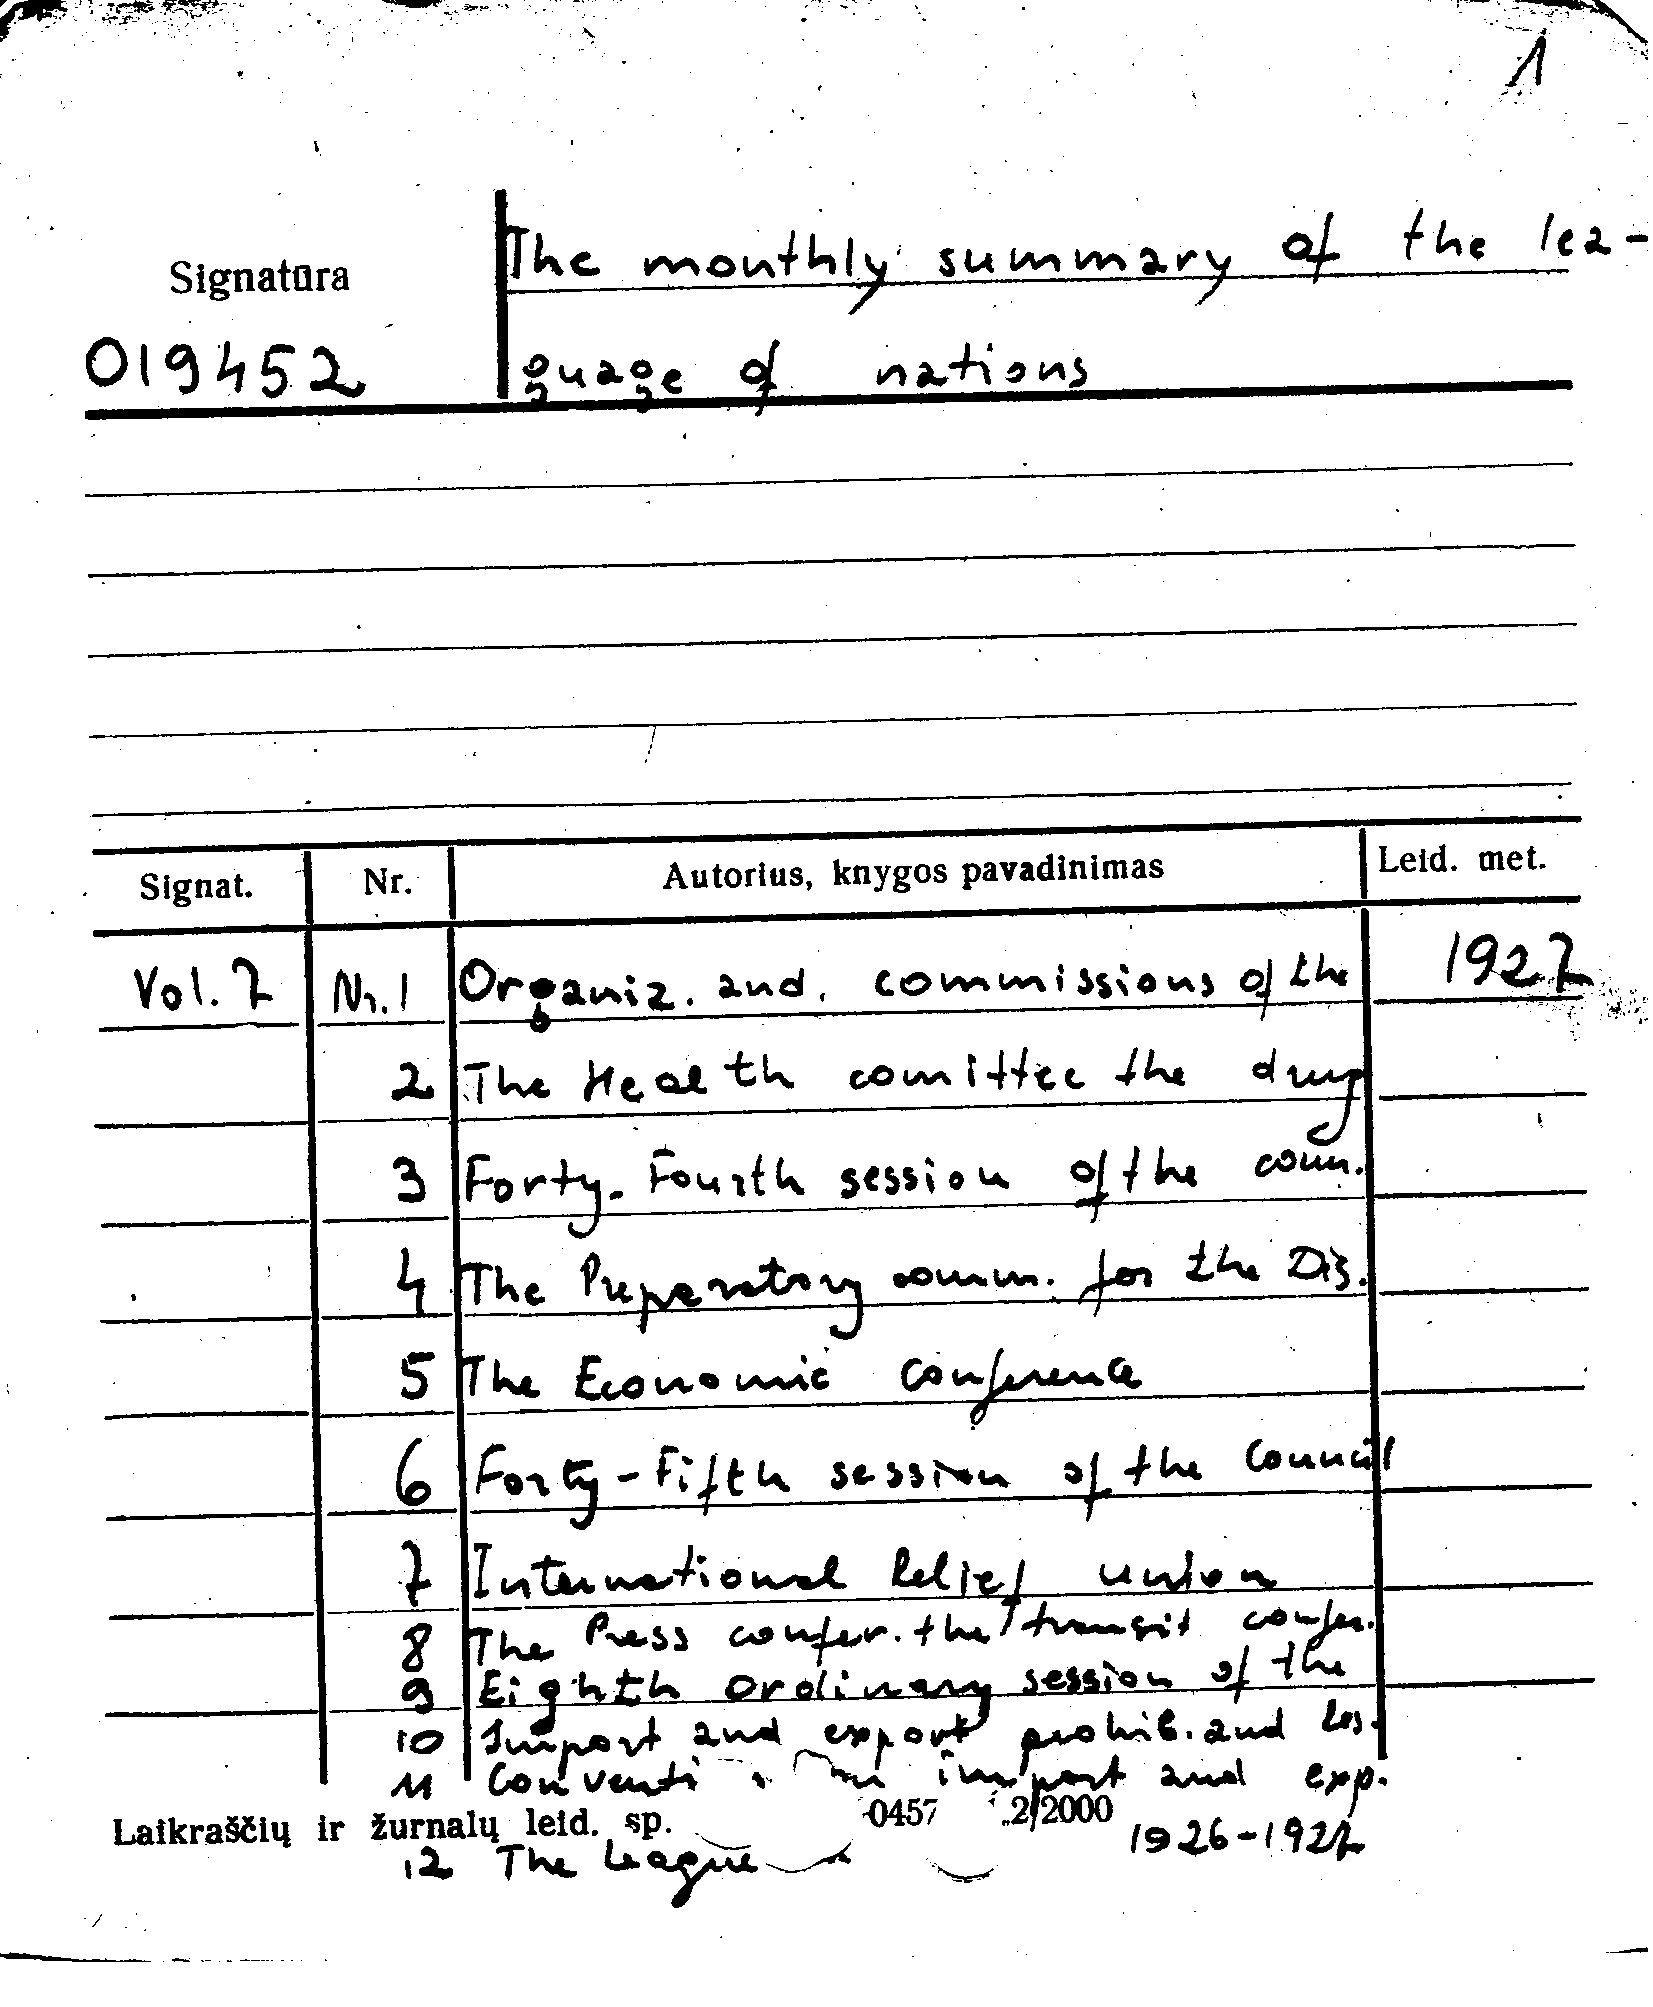 1
The monthly summary of the lea-
Signatūra
019452 guage of nations
Signat. Nr. Autorius, knygos pavadinimas Leid. met.
Vol. 7 Nr. 1 Organiz. and. commissions of the 1927
2 The Health comittee the drug
3 Forty-Fourth session of the coun.
4 The Preparatory comm. for the Dis.
5 The Economic conference
6 Forty-Fifth session of the Council
7 International Relief union
8 The Press confer. the transit confer.
9 Eighth ordinary session of the
10 Import and export prohib. and
11 import and exp.
Laikraščių ir žurnalų leid. sp. 0457 2/2000
12 The League 1926-1927